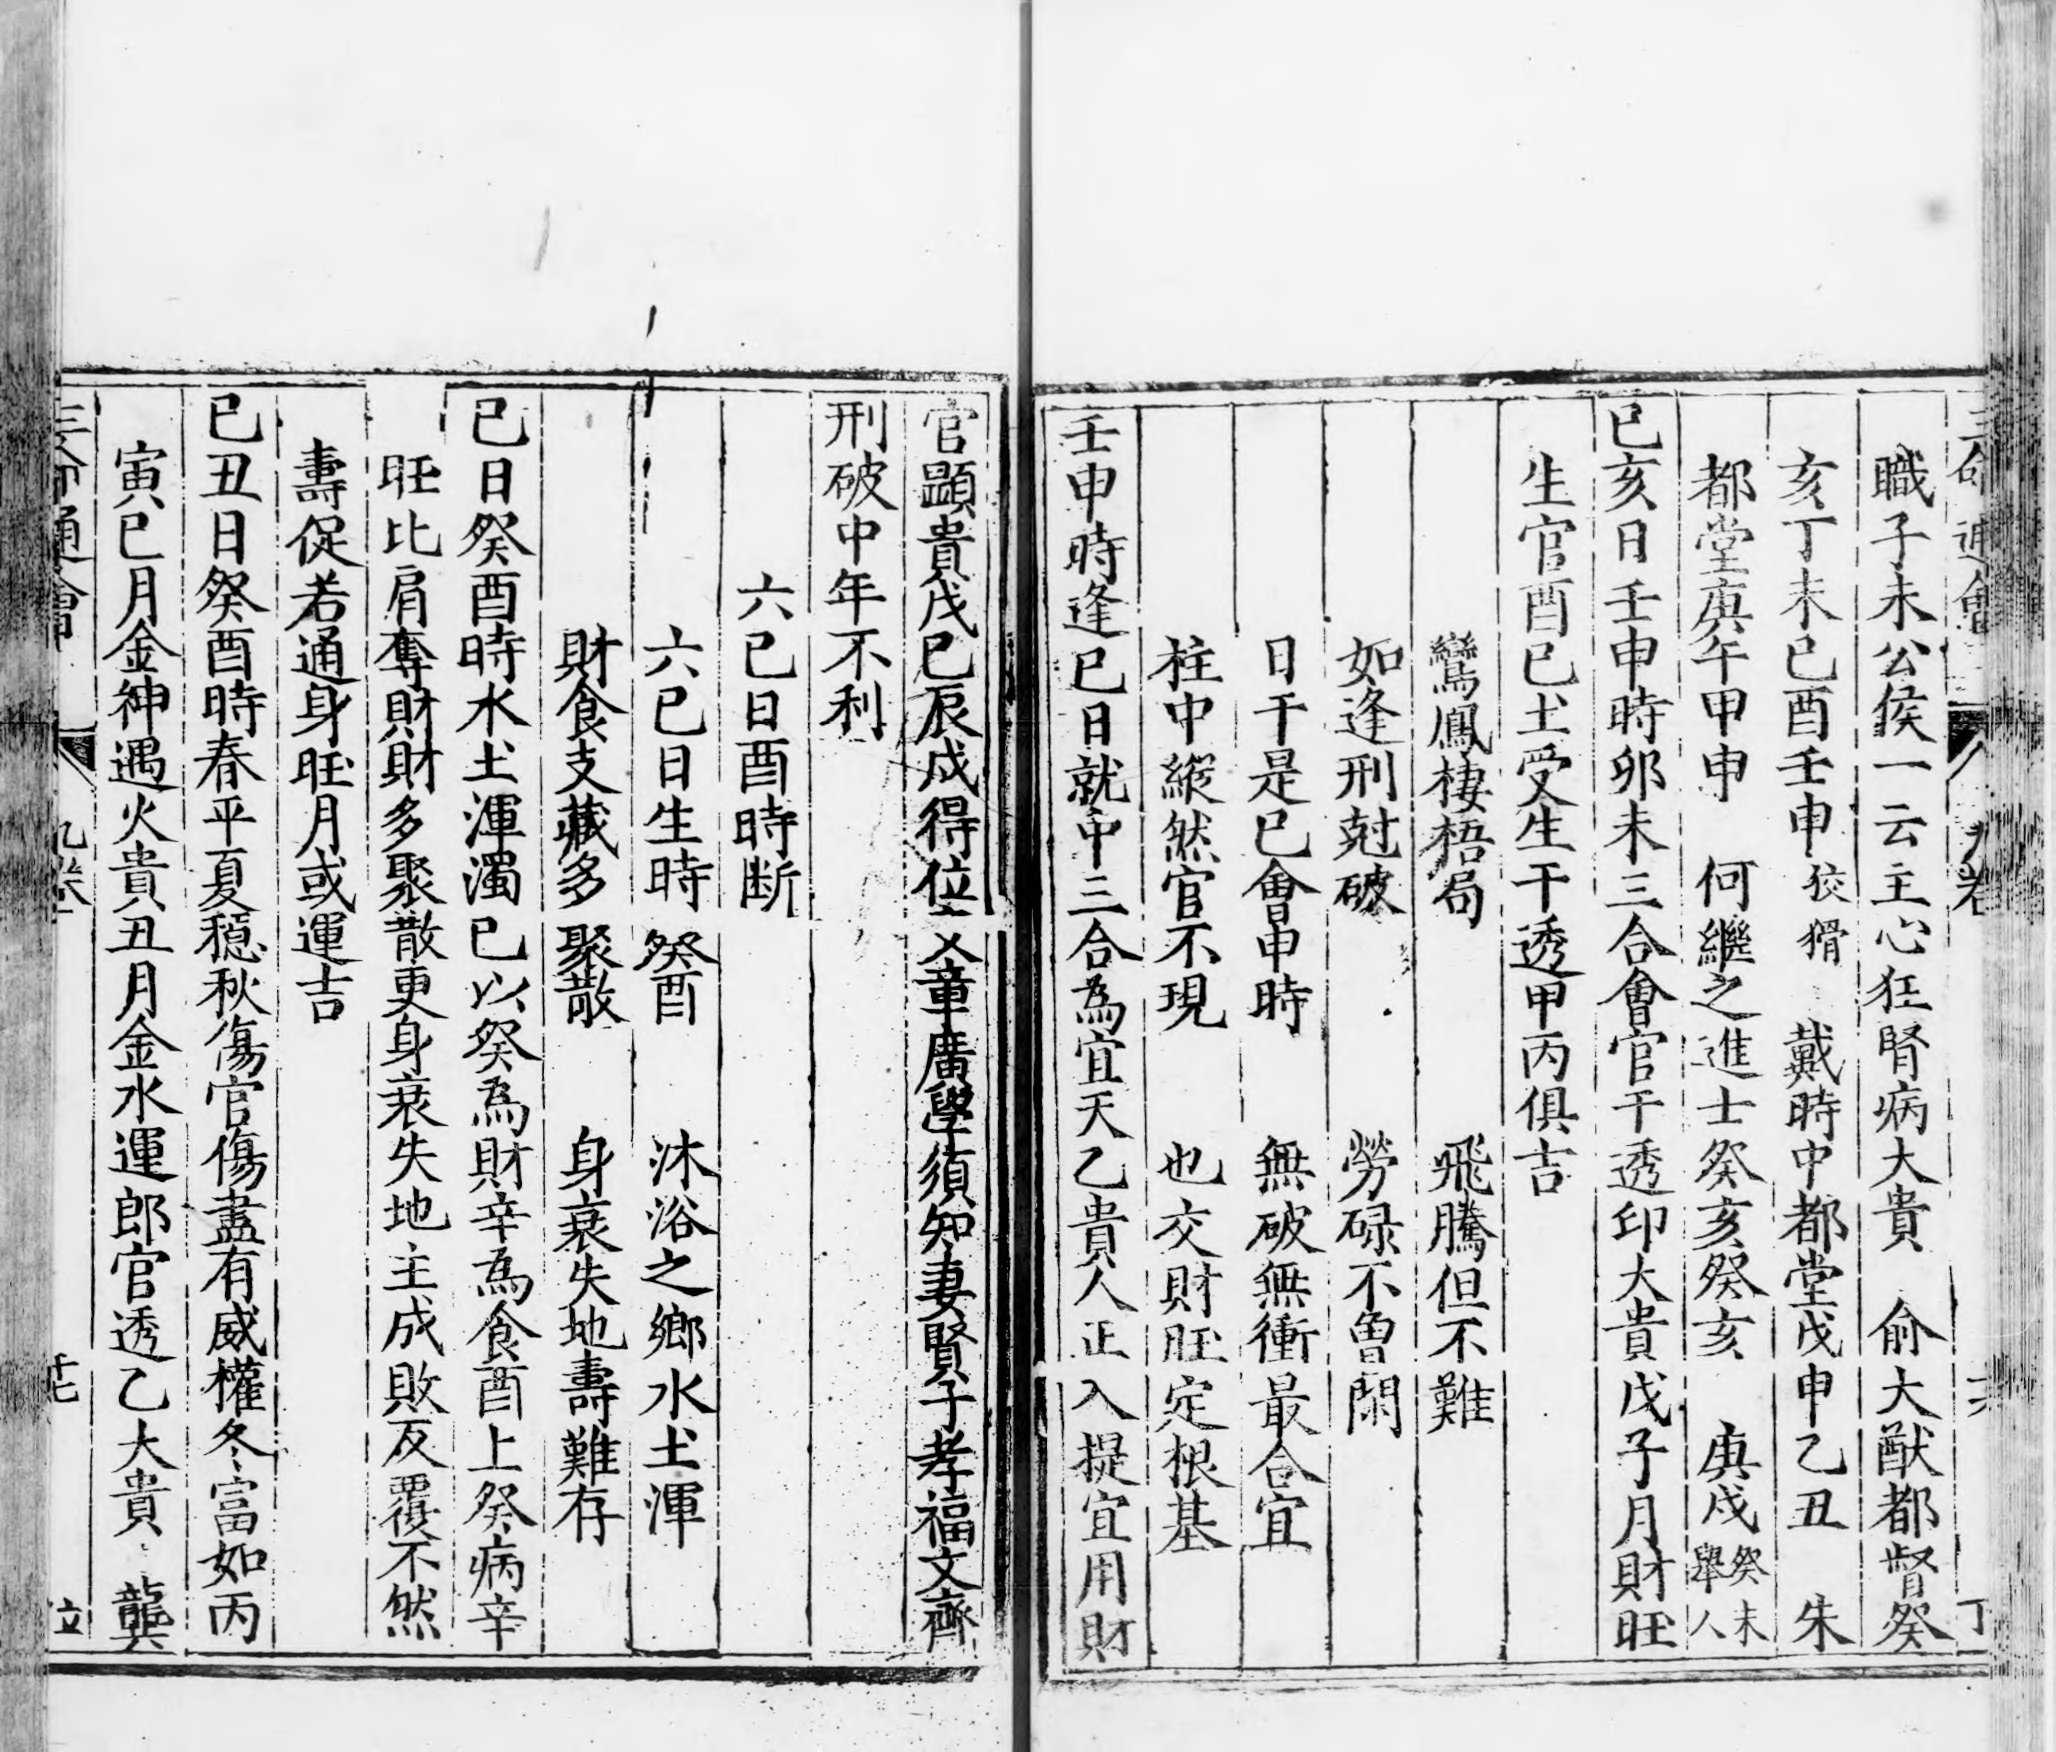 三命通會 九卷
職子未公侯一云主心狂腎病大貴 俞大猷都督癸
亥丁未己酉壬申狡猾 戴時中都堂戊申乙丑 朱
都堂庚午甲申 何繼之進士癸亥癸亥 庚戌癸未舉人
已亥日壬申時卯未三合會官干透印大貴戊子月財旺
生官酉巳土受生干透甲丙俱吉
鸞鳳棲梧局 飛騰但不難
如逢刑尅破 勞碌不曾閑
日干是已會申時 無破無衝最合宜
柱中縱然官不現 也交財旺定根基
壬申時逢已日就中三合為宜天乙貴人正入提宜用財
官顯貴戊已辰戌得位文章廣學須知妻賢子孝福文齊
刑破中年不利
六已日酉時断
六已日生時癸酉 沐浴之鄉水土渾
財食支藏多聚散 身衰失地壽難存
已日癸酉時水土渾濁已以癸為財辛為食酉上癸病辛
旺比肩奪財財多聚散更身衰失地主成敗反覆不然
壽促若通身旺月或運吉
已丑日癸酉時春平夏穩秋傷官傷盡有威權冬富如丙
寅巳月金神遇火貴丑月金水運郎官透乙大貴 龔
三命通會 九卷 十七